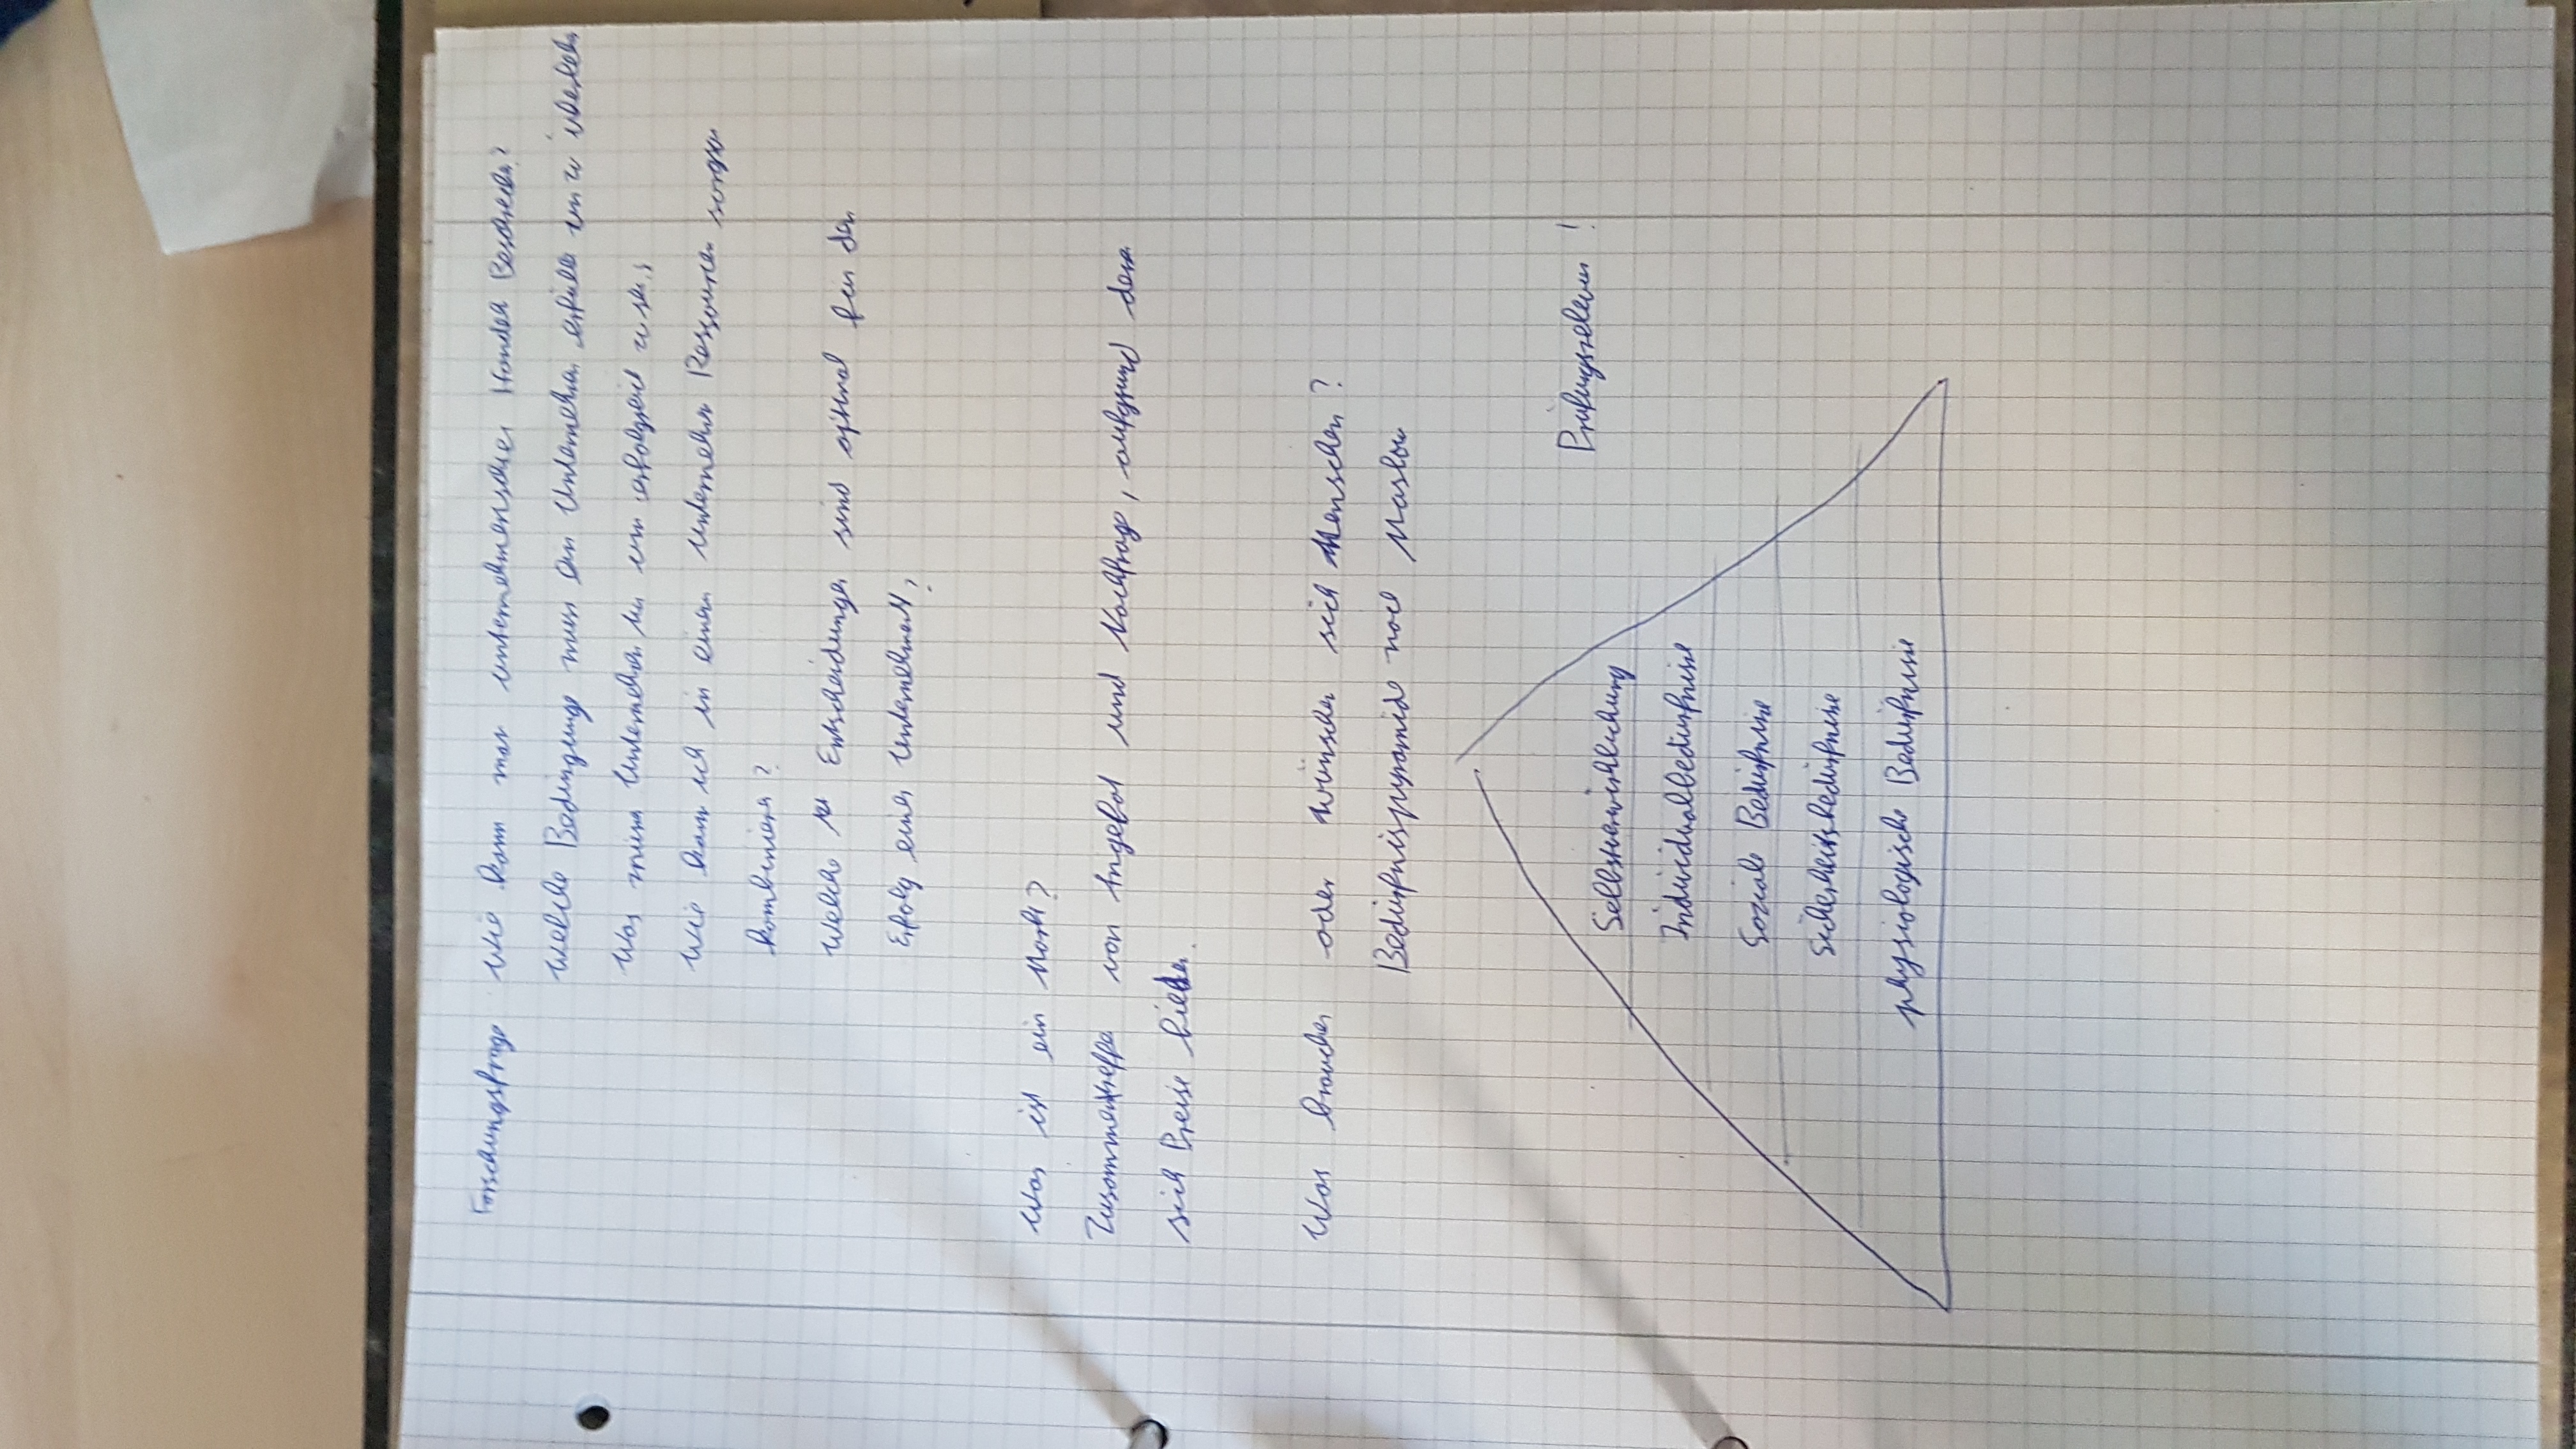 Forschungsfrage Wie kann man unternehmerisches Handeln Beschreiben?
Welche Bedingunge muss ein Unternehmen erfüllen um zu überleben
Was muss Unternehmen tun um erfolgreich zu sein?
Wie kann ich in einem Unternehmen Ressourcen
kombinieren?
Welche Entscheidungen sind optimal für den
Erfolg eines
Was ist ein Markt?
Zusammentreffen von Angebot und Nachfrage, aufgrund deren
sich Preise bilden.
Was brauchen oder wünschen sich Menschen?
Bedürfnispyramide nach Maslow
Prüfungsrelevant!
Selbstverwirklichung
Individualbedürfnisse
Soziale Bedürfnisse
Sicherheitsbedürfnisse
physiologische Bedürfnisse